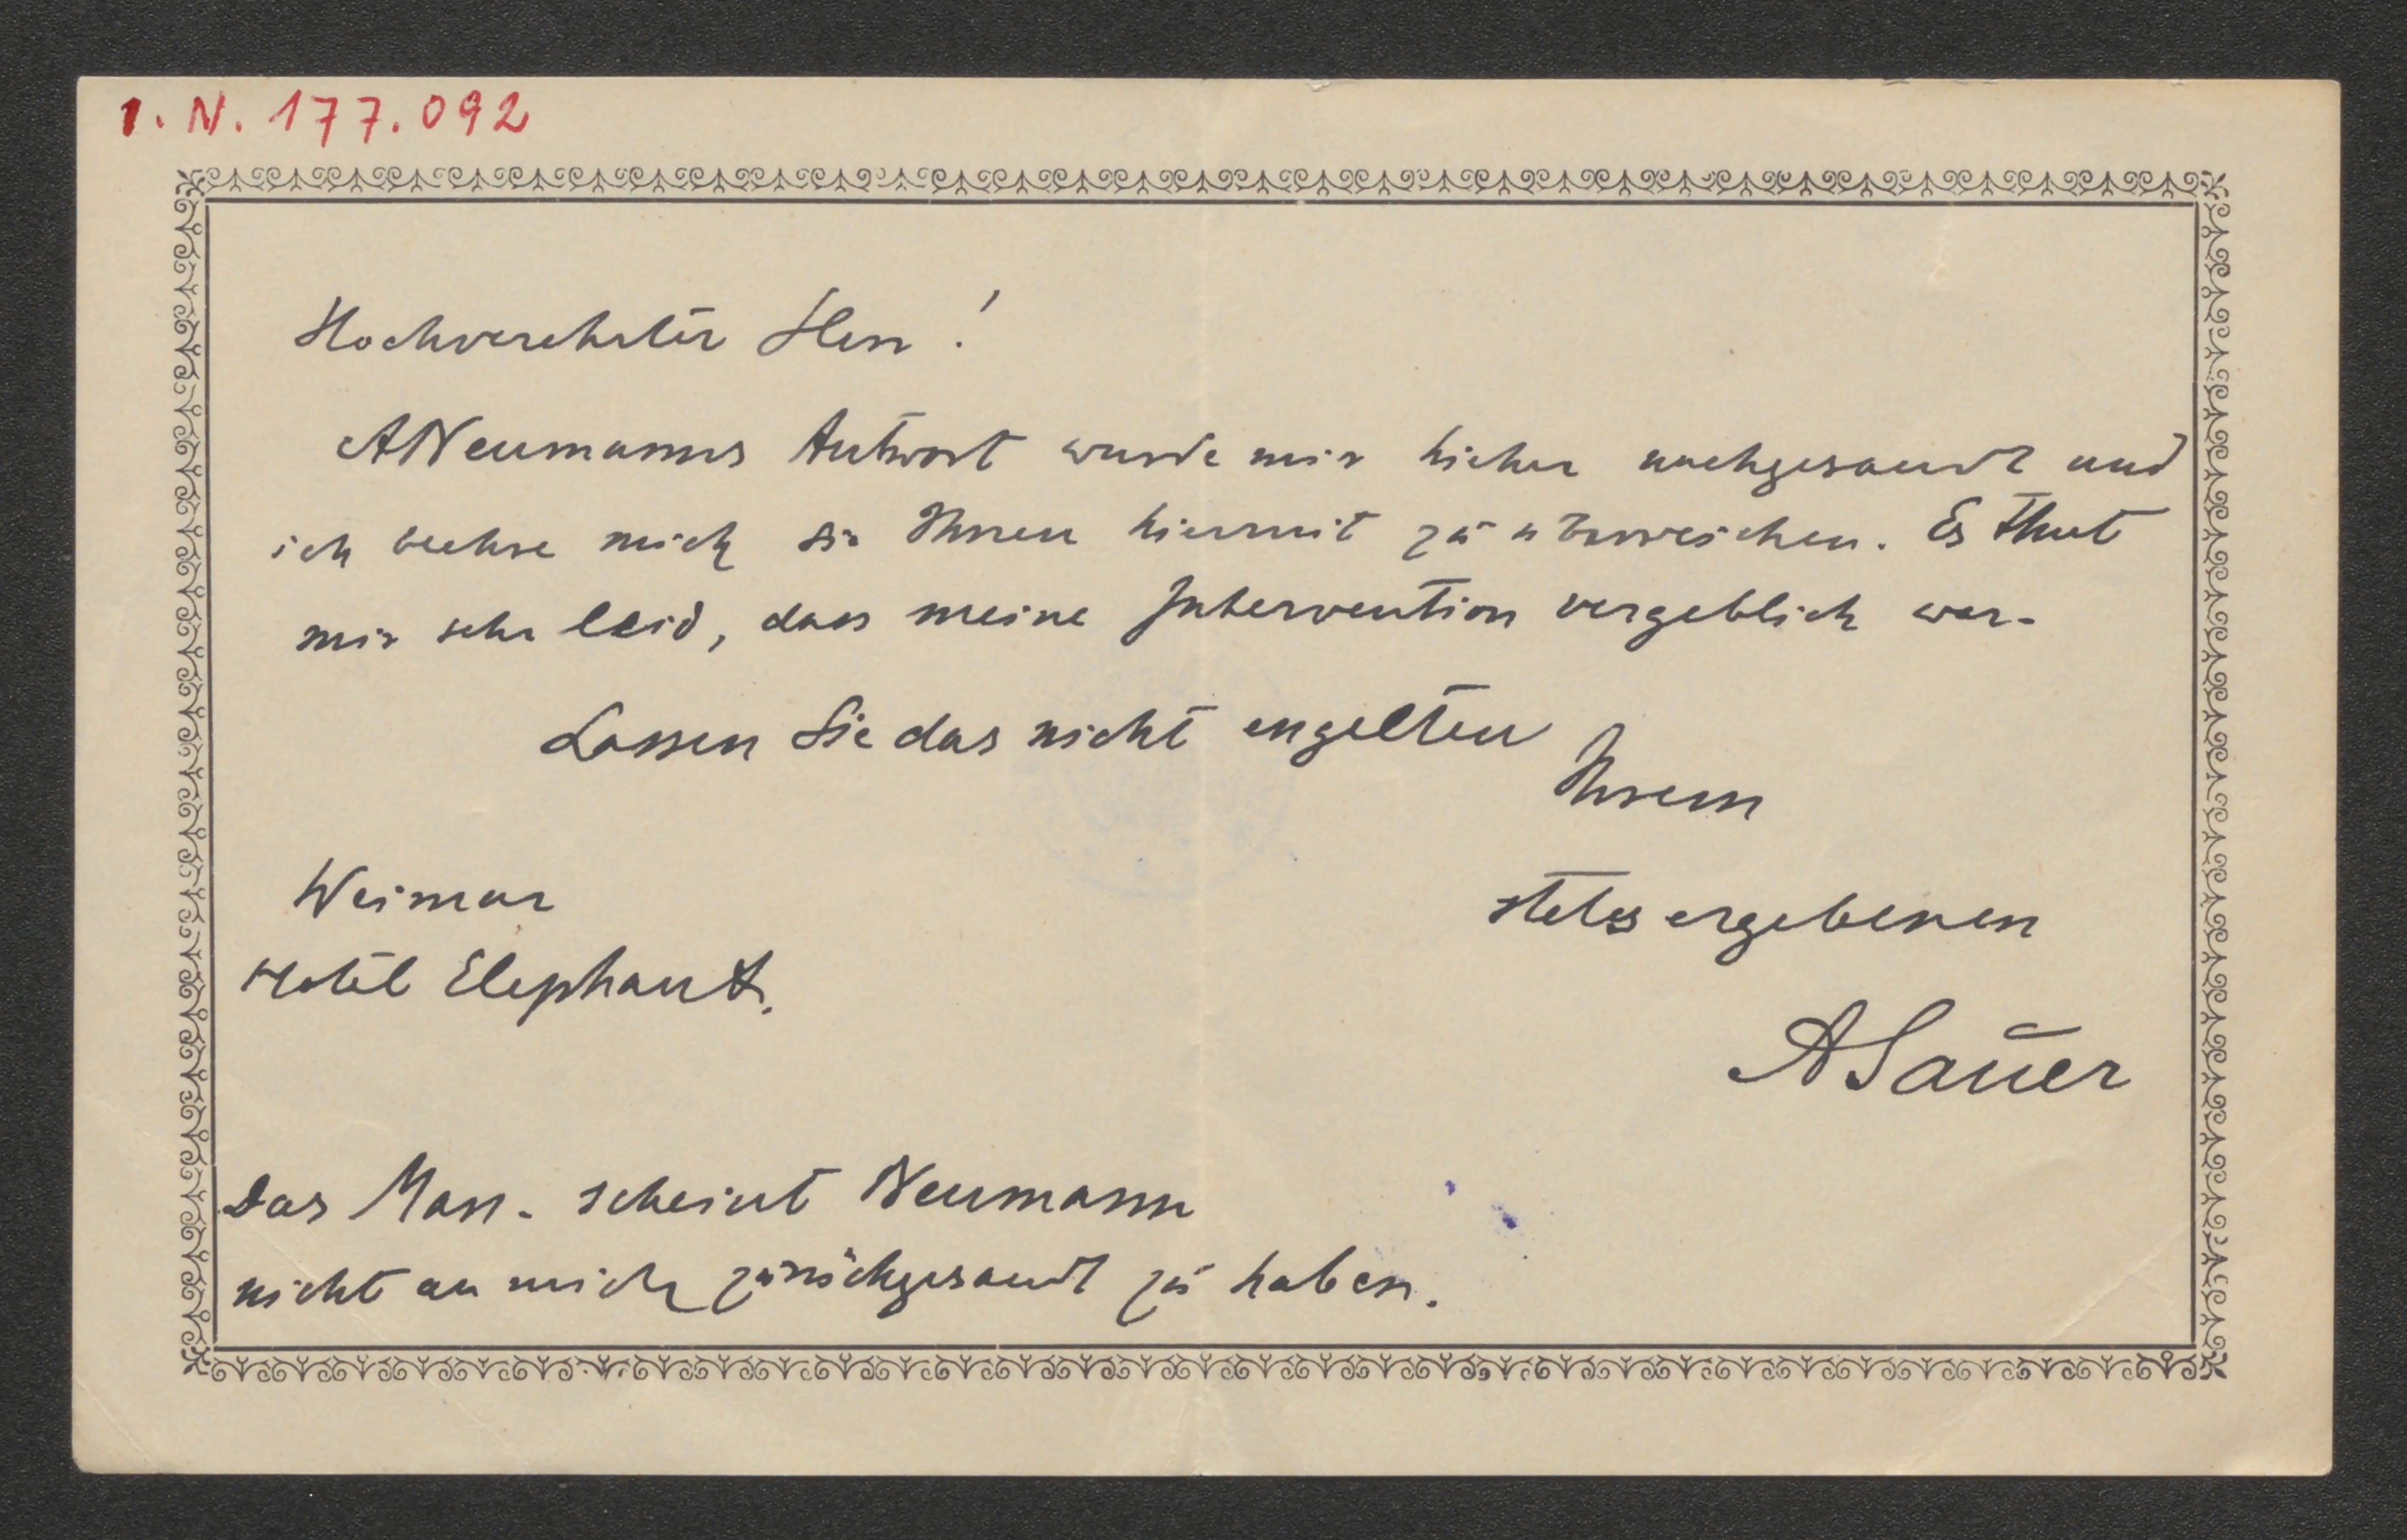 I. N. 177.092
Hochverehrter Herr!
ANeumanns Antwort wurde mir hieher nachgesandt und
ich beehre mich sie Ihnen hiermit zu überreichen. Es thut
mir sehr leid, dass meine Intervention vergeblich war.
Lassen Sie das nicht engelten
Ihrem
stets ergebenen
ASauer
Weimar
Hotel Elephant.
Das Man. scheint Neumann
nicht an mich zurückgesandt zu haben.